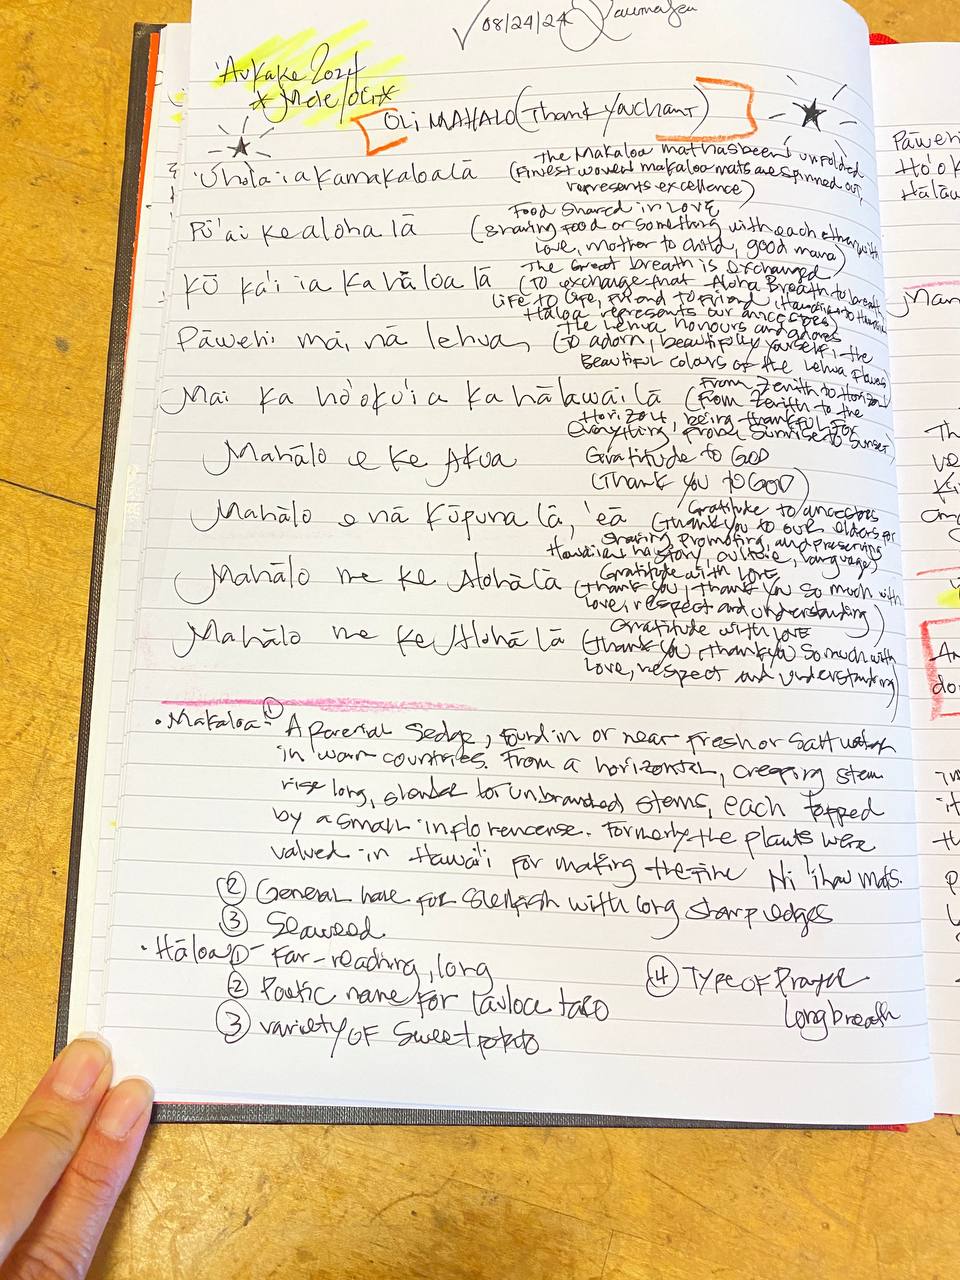 √08/24/24
'Aukake 2024
*Mele/oli*
OLi MAHALO (Thank You chant)
'Ūhola 'ia kamakaloa lā
(The Makaloa mat has been unfolded
(Finest woven makaloa mats are spinned out,
represents excellence)
Pū'ai ke aloha lā
Food shared in Love
(sharing Food or something with each other with
Love, mother to child, good mana)
Kū ka'i 'ia Ka hāloa lā
The Great breath is Exchanged
(To exchange that Aloha Breath to breath,
Life to Life, Friend to Friend,
Hāloa represents our ancestors)
Pāwehi mai nā lehua
The Lehua honours and adores
(To adorn, beautifully yourself, the
Beautiful colors of the Lehua flowers
Mai ka ho'oku'i a ka hālawai lā
From Zenith to Horizon
(From Zenith to the
Horizon, being thankful for
everything, from Sunrise to Sunset)
Mahālo e ke Akua
Gratitude to GOD
(Thank you to GOD)
Mahālo e nā Kūpuna lā, 'eā
Gratitude to ancestors
(thank you to our elders for
Sharing, Promoting, and preserving
Hawaiian history, culture, language)
Mahālo me ke Alohā lā
Gratitude with LOVE
(Thank YOU, Thank YOU so much with
Love, respect and understanding)
Mahālo me ke Alohā lā
Gratitude with LOVE
(thank YOU, thank you so much with
Love, respect and understanding)
• Makaloa - ① A perenial Sedge, found in or near fresh or salt water
in warm countries. From a horizontal, creeping stem
rise long, slender unbranded stems, each topped
by a small inflorencense. Formerly the plants were
valued in Hawai'i for making the fine Ni'ihau mats.
② General name for shellfish with long sharp edges
③ Seaweed
• Hāloa ① - Far-reaching, long
② Poetic name for taro
③ variety of sweet potato
④ Type of Prayer
Long breath
Pāwehi
Hālau